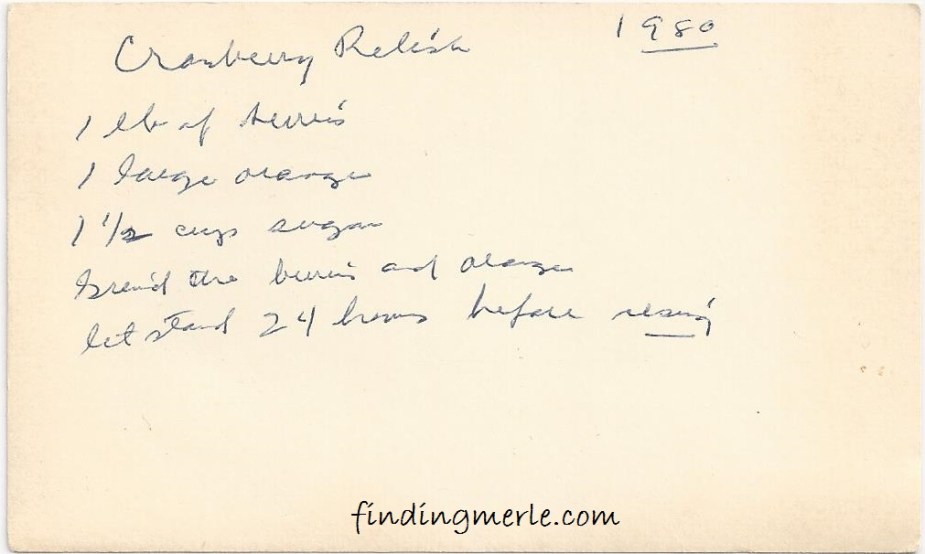 Cranberry Relish 1980
1 lb of berries
1 large orange
1 1/2 cups sugar
Grind the berries and orange
let stand 24 hours before
findingmerle.com